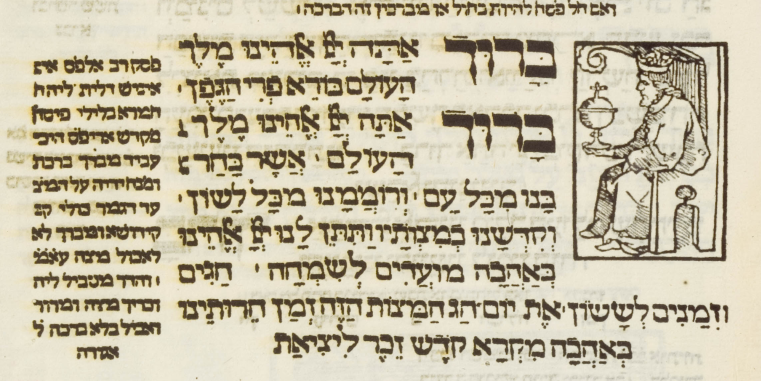 ואם חל פסח להיות בחול אז מברכין זה הברכה׃
בָּרוּךְ אַתָּה יְיָ אֱלֹהֵינוּ מֶלֶךְ
הָעוֹלָם בּוֹרֵא פְּרִי הַגֶּפֶן׃
בָּרוּךְ אַתָּה יְיָ אֱלֹהֵינוּ מֶלֶךְ
הָעוֹלָם · אֲשֶׁר בָּחַר
בָּנוּ מִכָּל עַם · וְרוֹמְמָנוּ מִכָּל לָשׁוֹן ·
וְקִדְּשָׁנוּ בְּמִצְוֹתָיו וַתִּתֵּן לָנוּ יְיָ אֱלֹהֵינוּ
בְּאַהֲבָה מוֹעֲדִים לְשִׂמְחָה · חַגִּים
וּזְמַנִּים לְשָׂשׂוֹן · אֶת יוֹם חַג הַמַּצּוֹת הַזֶּה זְמַן חֵרוּתֵינוּ
בְּאַהֲבָה מִקְרָא קֹדֶשׁ זֵכֶר לִיצִיאַת
פסק רב אלפס
אימיש דלית ליה
חמרא כלילי
מקדש
עביד מברך ברכת
ומנח ידיה על המצ
עד דגמר כולי
קידושא ומברך לא
לאכול מיצה
והדר מטביל ליה
וכריך מצה ומרור
ואכיל בלא ברכה ל